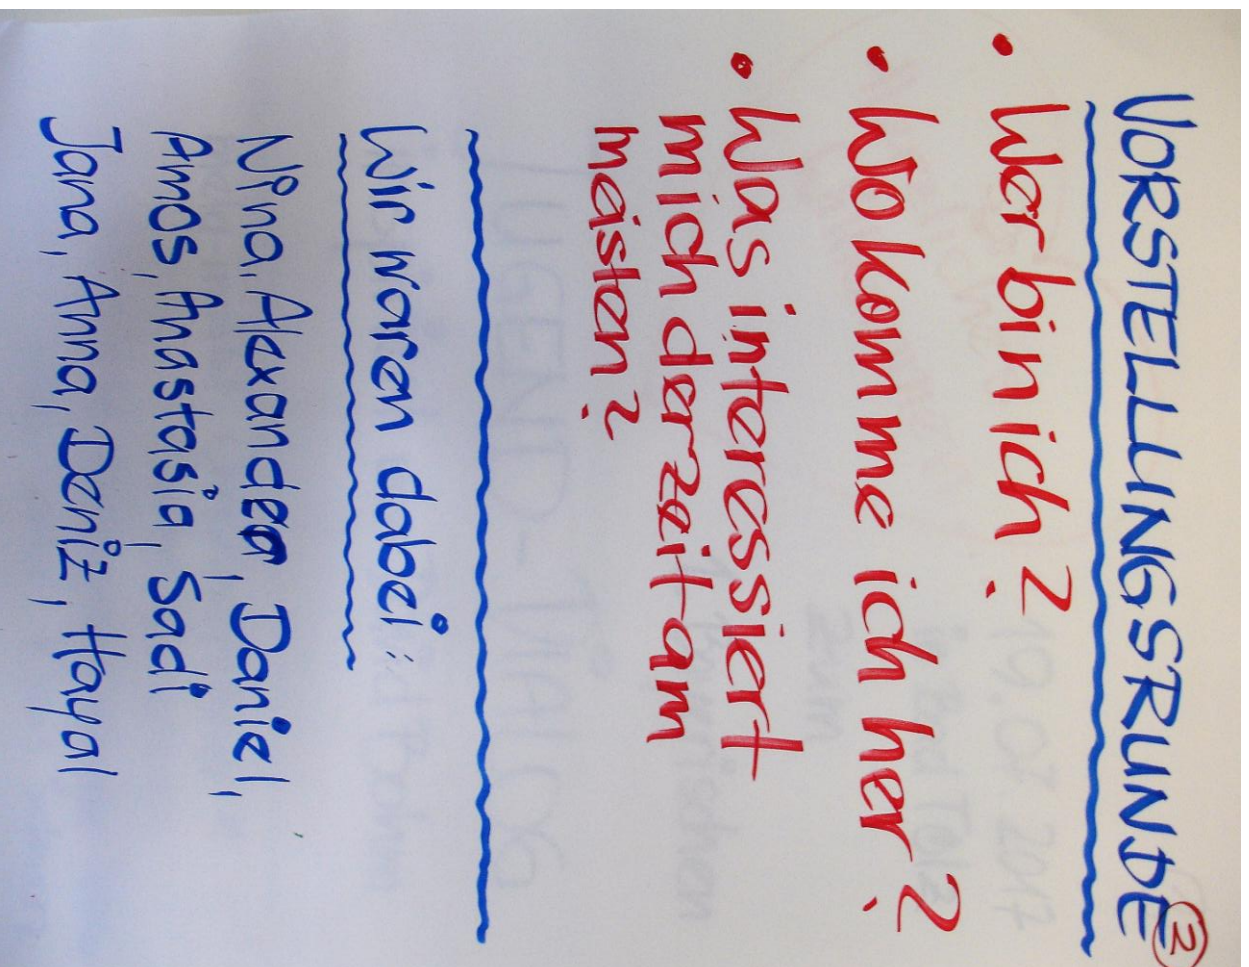 VORSTELLUNGSRUNDE ②
• Wer bin ich?
• Wo komme ich her?
• Was interessiert
mich derzeit am
meisten?
Wir waren dabei:
Nina, Alexander, Daniel,
Amos, Anastasia, Sadi
Jana, Anna, Deniz, Hayal